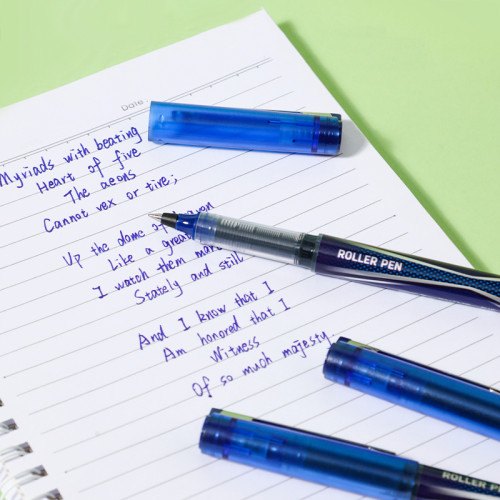 Date:
Myriads with beating
Heart of five
The aeons
Cannot vex or tire;
Up the dome of
Like a great
I watch them
Stately and still
And I know that I
Am honored that I
Witness
Of so much majesty
ROLLER PEN
ROLLER PEN